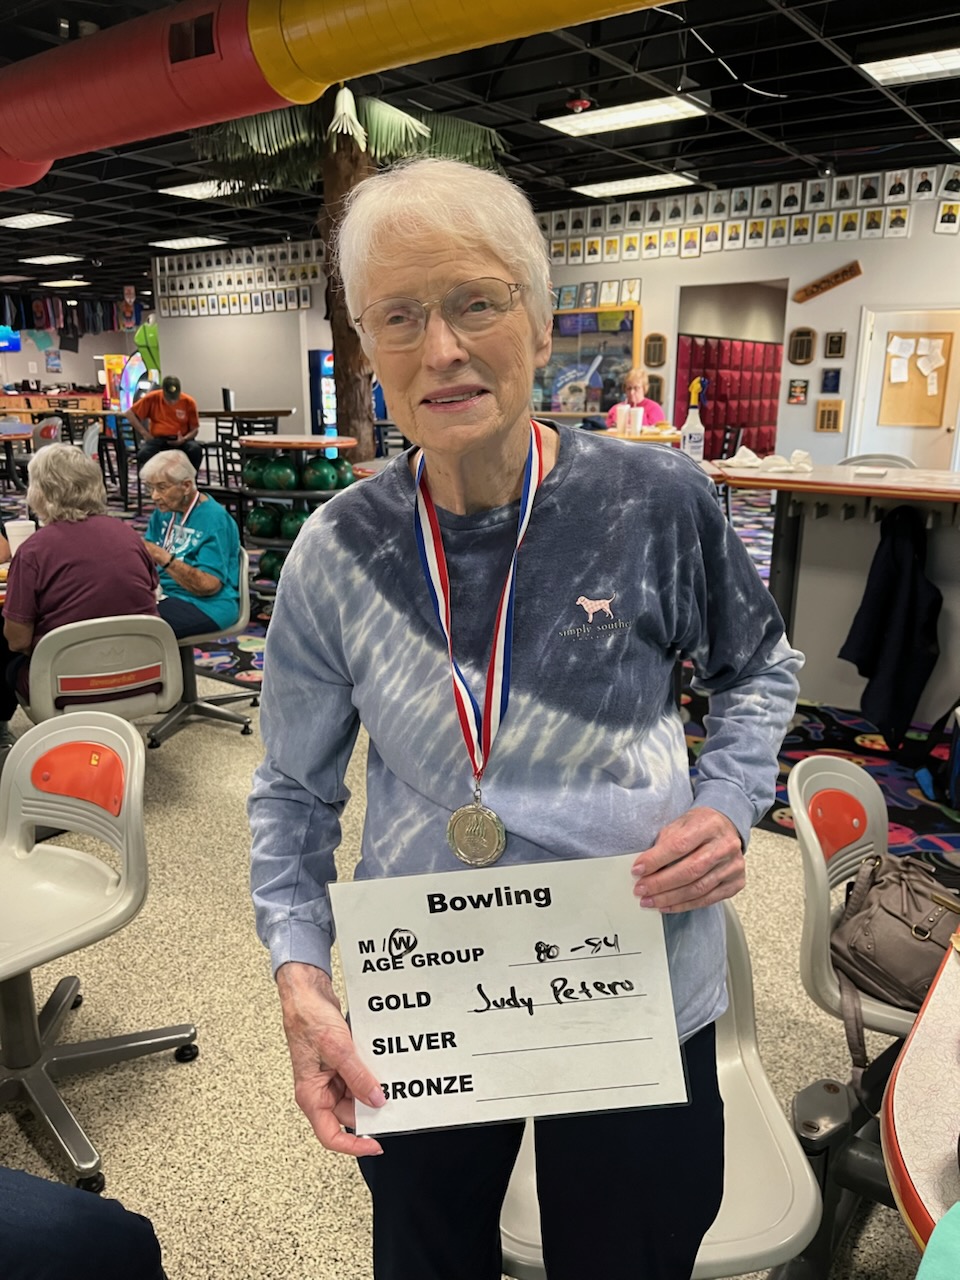 LOCKERS
simply southe
Bowling
M / W
AGE GROUP 80-84
GOLD Judy Peters
SILVER
BRONZE